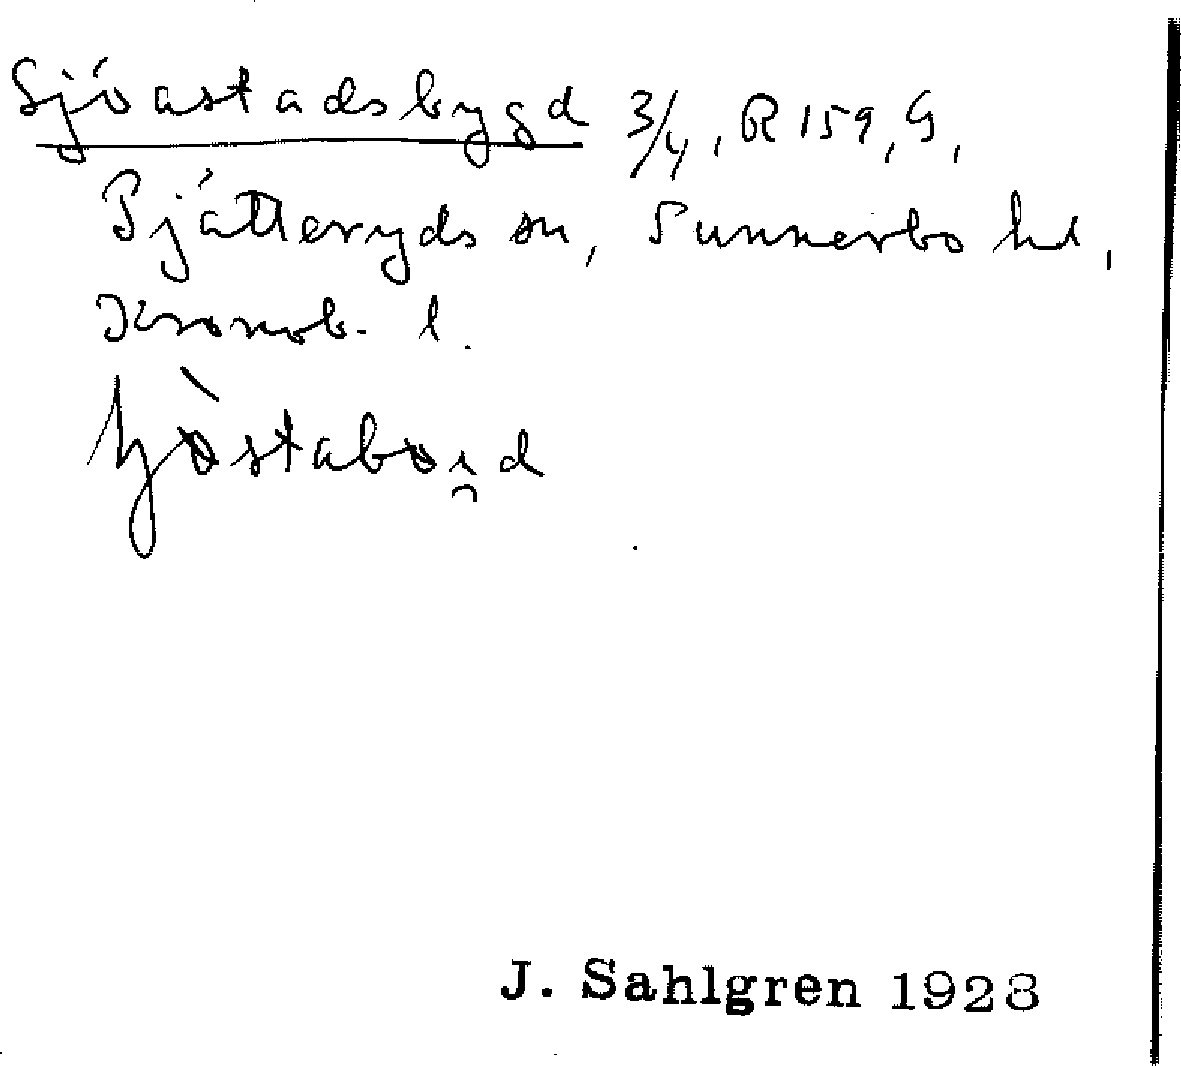 Sjöastadsbygd 3/4, R 159, G,
Pjätteryds sn, Sunnerbo hd,
Kronob. l.
J. Sahlgren 1928